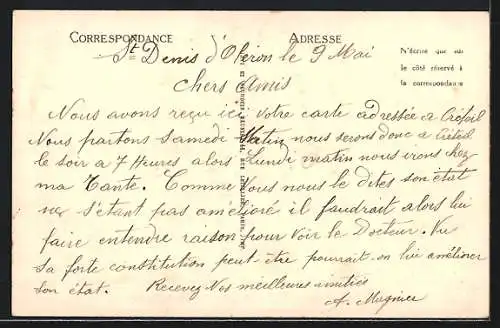 CORRESPONDANCE ADRESSE
N'écrire que sur
le côté réservé à
la correspondance
St Denis d'Oléron le 9 Mai
Chers Amis
Nous avons reçu ici Votre carte adressée a Créteil
Nous partons Samedi Matin nous serons donc a Créteil
le soir a 7 Heures alors Lundi matin nous irons chez
ma Tante. Comme Vous nous le dites son état
ne s'étant pas amélioré il faudrait alors lui
faire entendre raison pour Voir le Docteur. Vu
sa forte constitution peut-être pourrait-on lui améliorer
son état. Recevez Nos meilleures amitiés
A. Magnier